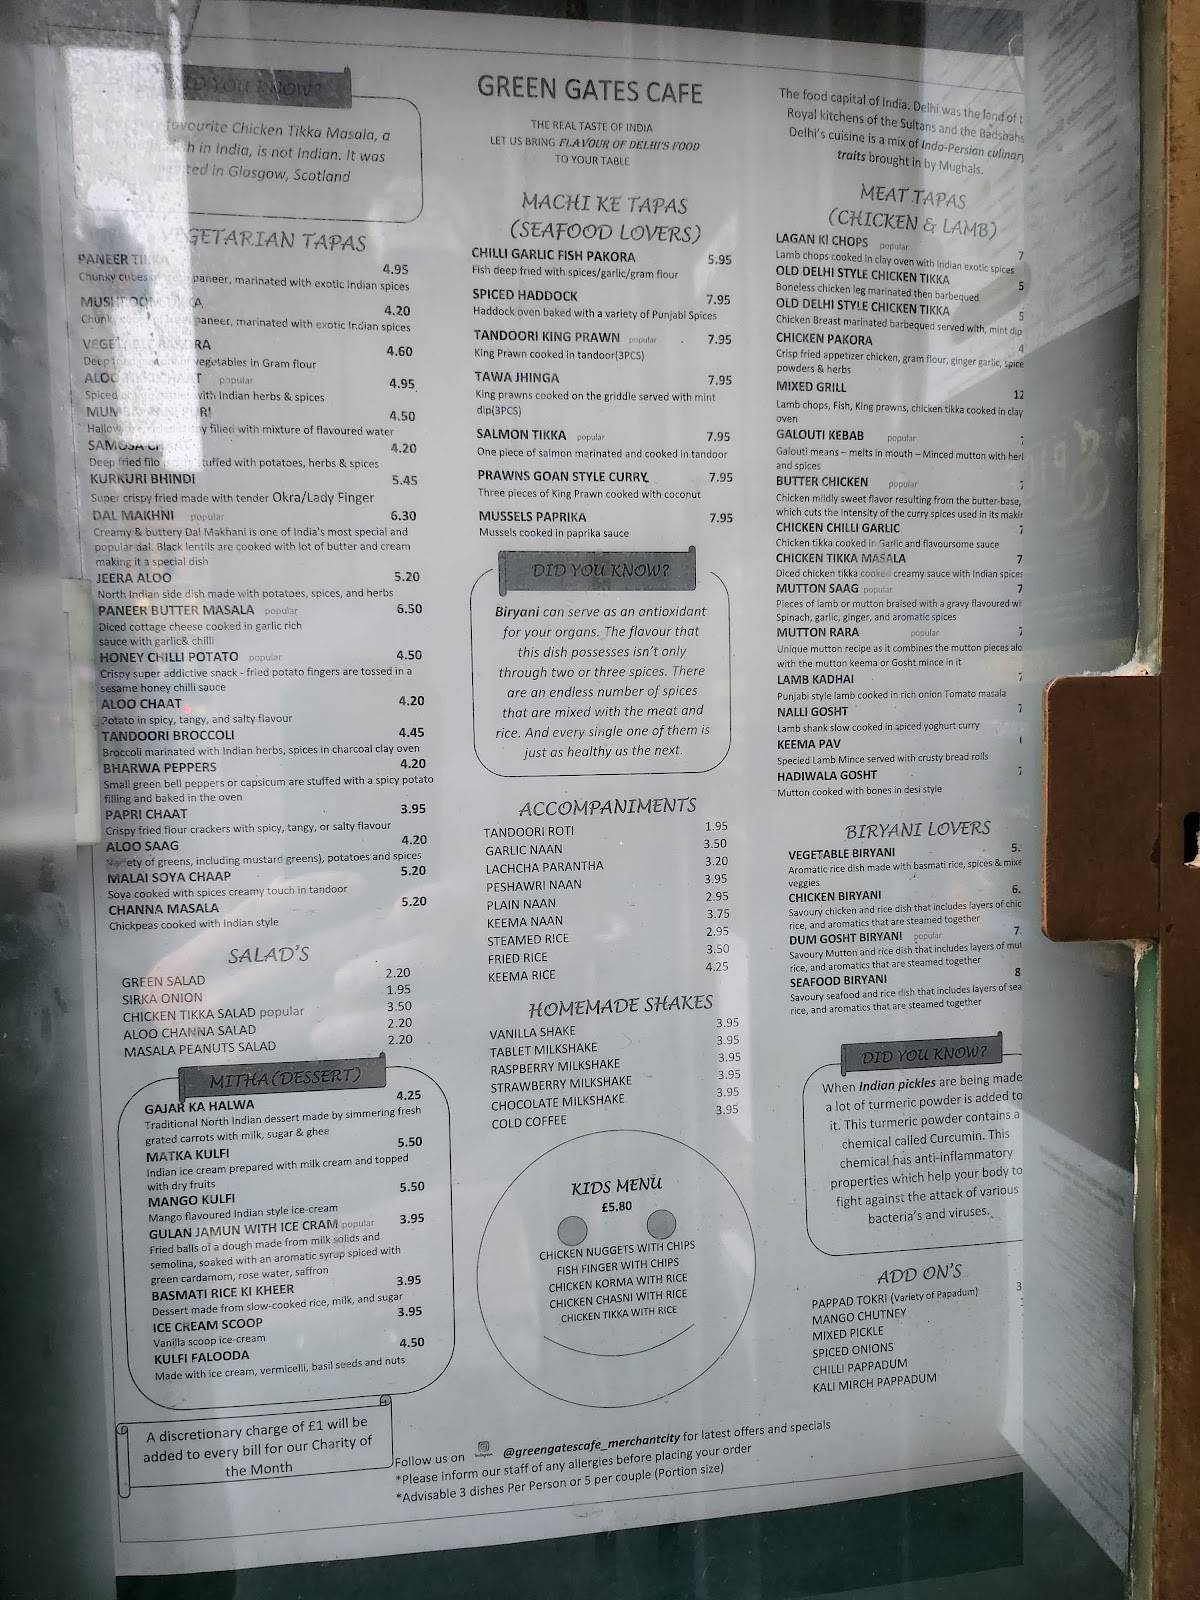 GREEN GATES CAFE
THE REAL TASTE OF INDIA
LET US BRING FLAVOUR OF DELHI'S FOOD
TO YOUR TABLE
YOU KNOW?
favourite Chicken Tikka Masala, a
in India, is not Indian. It was
in Glasgow, Scotland
The food capital of India. Delhi was the land of
Royal kitchens of the Sultans and the Badshahs
Delhi's cuisine is a mix of Indo-Persian culinary
traits brought in by Mughals.
TAPAS
PANEER 4.95
Chunky cubes paneer, marinated with exotic Indian spices
4.20
paneer, marinated with exotic Indian spices
4.60
vegetables in Gram flour
ALOO popular 4.95
Spiced with Indian herbs & spices
4.50
filled with mixture of flavoured water
SAMOSA 4.20
Deep fried filo stuffed with potatoes, herbs & spices
KURKURI BHINDI 5.45
Super crispy fried made with tender Okra/Lady Finger
DAL MAKHNI popular 6.30
Creamy & buttery Dal Makhani is one of India's most special and
popular dal. Black lentils are cooked with lot of butter and cream
making it a special dish
JEERA ALOO 5.20
North Indian side dish made with potatoes, spices, and herbs
PANEER BUTTER MASALA popular 6.50
Diced cottage cheese cooked in garlic rich
sauce with garlic& chilli
HONEY CHILLI POTATO popular 4.50
Crispy super addictive snack - fried potato fingers are tossed in a
sesame honey chilli sauce
ALOO CHAAT 4.20
Potato in spicy, tangy, and salty flavour
TANDOORI BROCCOLI 4.45
Broccoli marinated with Indian herbs, spices in charcoal clay oven
BHARWA PEPPERS 4.20
Small green bell peppers or capsicum are stuffed with a spicy potato
filling and baked in the oven
PAPRI CHAAT 3.95
Crispy fried flour crackers with spicy, tangy, or salty flavour
ALOO SAAG 4.20
Variety of greens, including mustard greens), potatoes and spices
MALAI SOYA CHAAP 5.20
Soya cooked with spices creamy touch in tandoor
CHANNA MASALA 5.20
Chickpeas cooked with Indian style
SALAD'S
GREEN SALAD 2.20
SIRKA ONION 1.95
CHICKEN TIKKA SALAD popular 3.50
ALOO CHANNA SALAD 2.20
MASALA PEANUTS SALAD 2.20
MITHA (DESSERT)
GAJAR KA HALWA 4.25
Traditional North Indian dessert made by simmering fresh
grated carrots with milk, sugar & ghee
MATKA KULFI 5.50
Indian ice cream prepared with milk cream and topped
with dry fruits
MANGO KULFI 5.50
Mango flavoured Indian style ice-cream
GULAN JAMUN WITH ICE CRAM popular 3.95
Fried balls of a dough made from milk solids and
semolina, soaked with an aromatic syrup spiced with
green cardamom, rose water, saffron
BASMATI RICE KI KHEER 3.95
Dessert made from slow-cooked rice, milk, and sugar
ICE CREAM SCOOP 3.95
Vanilla scoop ice-cream
KULFI FALOODA 4.50
Made with ice cream, vermicelli, basil seeds and nuts
A discretionary charge of £1 will be
added to every bill for our Charity of
the Month
MACHI KE TAPAS
(SEAFOOD LOVERS)
CHILLI GARLIC FISH PAKORA 5.95
Fish deep fried with spices/garlic/gram flour
SPICED HADDOCK 7.95
Haddock oven baked with a variety of Punjabi Spices
TANDOORI KING PRAWN popular 7.95
King Prawn cooked in tandoor(3PCS)
TAWA JHINGA 7.95
King prawns cooked on the griddle served with mint
dip(3PCS)
SALMON TIKKA popular 7.95
One piece of salmon marinated and cooked in tandoor
PRAWNS GOAN STYLE CURRY 7.95
Three pieces of King Prawn cooked with coconut
MUSSELS PAPRIKA 7.95
Mussels cooked in paprika sauce
DID YOU KNOW?
Biryani can serve as an antioxidant
for your organs. The flavour that
this dish possesses isn't only
through two or three spices. There
are an endless number of spices
that are mixed with the meat and
rice. And every single one of them is
just as healthy us the next.
ACCOMPANIMENTS
TANDOORI ROTI 1.95
GARLIC NAAN 3.50
LACHCHA PARANTHA 3.20
PESHAWRI NAAN 3.95
PLAIN NAAN 2.95
KEEMA NAAN 3.75
STEAMED RICE 2.95
FRIED RICE 3.50
KEEMA RICE 4.25
HOMEMADE SHAKES
VANILLA SHAKE 3.95
TABLET MILKSHAKE 3.95
RASPBERRY MILKSHAKE 3.95
STRAWBERRY MILKSHAKE 3.95
CHOCOLATE MILKSHAKE 3.95
COLD COFFEE 3.95
KIDS MENU
£5.80
CHICKEN NUGGETS WITH CHIPS
FISH FINGER WITH CHIPS
CHICKEN KORMA WITH RICE
CHICKEN CHASNI WITH RICE
CHICKEN TIKKA WITH RICE
MEAT TAPAS
(CHICKEN & LAMB)
LAGAN KI CHOPS popular 7
Lamb chops cooked in clay oven with Indian exotic spices
OLD DELHI STYLE CHICKEN TIKKA 5
Boneless chicken leg marinated then barbequed
OLD DELHI STYLE CHICKEN TIKKA 5
Chicken Breast marinated barbequed served with, mint dip
CHICKEN PAKORA 4
Crisp fried appetizer chicken, gram flour, ginger garlic, spice
powders & herbs
MIXED GRILL 12
Lamb chops, Fish, King prawns, chicken tikka cooked in clay
oven
GALOUTI KEBAB popular
Galouti means – melts in mouth – Minced mutton with
and spices
BUTTER CHICKEN popular
Chicken mildly sweet flavor resulting from the butter-base,
which cuts the intensity of the curry spices used in its
CHICKEN CHILLI GARLIC
Chicken tikka cooked in Garlic and flavoursome sauce
CHICKEN TIKKA MASALA 7
Diced chicken tikka cooked creamy sauce with Indian spices
MUTTON SAAG popular 7
Pieces of lamb or mutton braised with a gravy flavoured
Spinach, garlic, ginger, and aromatic spices
MUTTON RARA popular
Unique mutton recipe as it combines the mutton pieces
with the mutton keema or Gosht mince in it
LAMB KADHAI
Punjabi style lamb cooked in rich onion Tomato masala
NALLI GOSHT
Lamb shank slow cooked in spiced yoghurt curry
KEEMA PAV
Specied Lamb Mince served with crusty bread rolls
HADIWALA GOSHT
Mutton cooked with bones in desi style
BIRYANI LOVERS
VEGETABLE BIRYANI 5.
Aromatic rice dish made with basmati rice, spices &
veggies
CHICKEN BIRYANI 6.
Savoury chicken and rice dish that includes layers of
rice, and aromatics that are steamed together
DUM GOSHT BIRYANI popular 7.
Savoury Mutton and rice dish that includes layers of
rice, and aromatics that are steamed together
SEAFOOD BIRYANI 8
Savoury seafood and rice dish that includes layers of
rice, and aromatics that are steamed together
DID YOU KNOW?
When Indian pickles are being made
a lot of turmeric powder is added to
it. This turmeric powder contains a
chemical called Curcumin. This
chemical has anti-inflammatory
properties which help your body to
fight against the attack of various
bacteria's and viruses.
ADD ON'S
PAPPAD TOKRI (Variety of Papadum) 3
MANGO CHUTNEY
MIXED PICKLE
SPICED ONIONS
CHILLI PAPPADUM
KALI MIRCH PAPPADUM
Follow us on Instagram @greengatescafe_merchantcity for latest offers and specials
*Please inform our staff of any allergies before placing your order
*Advisable 3 dishes Per Person or 5 per couple (Portion size)